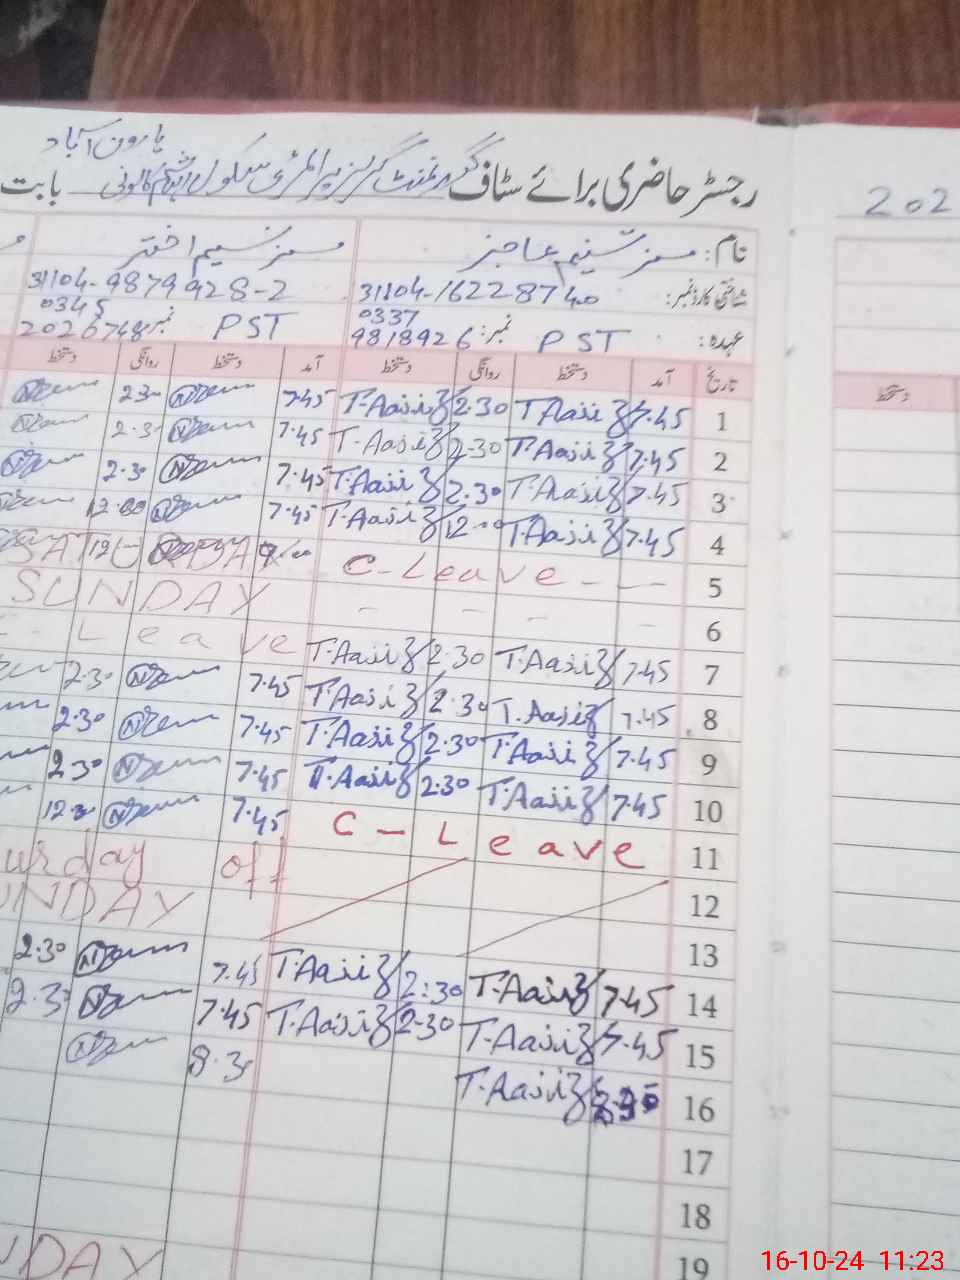 ہارون آباد
رجسٹر حاضری برائے سٹاف گورنمنٹ گرلز پرائمری سکول ہاشم کالونی بابت
202
نام: مسز تسنیم عاجز مسز نسیم اختر
شناختی کارڈ نمبر: 31104-16228740 31104-9879928-2
عہدہ: PST نمبر: 0337 9818926 PST نمبر: 0345 2026748
تاریخ آمد دستخط روانگی دستخط آمد دستخط روانگی دستخط
دستخط
1 7.45 T.Aajiz 2.30 T.Aajiz 7.45 2.30
2 7.45 T.Aajiz 2.30 T.Aajiz 7.45 2.30
3 7.45 T.Aajiz 2.30 T.Aajiz 7.45 2.30
4 7.45 T.Aajiz 12.00 T.Aajiz 7.45 12.00
5 C-Leave
6 SUNDAY
7 7.45 T.Aajiz 2.30 T.Aajiz Leave
8 7.45 T.Aajiz 2.30 T.Aajiz 7.45 2.30
9 7.45 T.Aajiz 2.30 T.Aajiz 7.45 2.30
10 7.45 T.Aajiz 2.30 T.Aajiz 7.45 2.30
11 C-Leave 7.45 12.30
12 urday off
13 UNDAY
14 7.45 T.Aajiz 2:30 T.Aajiz 7.45 2.30
15 7.45 T.Aajiz 2.30 T.Aajiz 7.45 2.30
16 T.Aajiz 8.3
17
18
19 NDAY
16-10-24 11:23